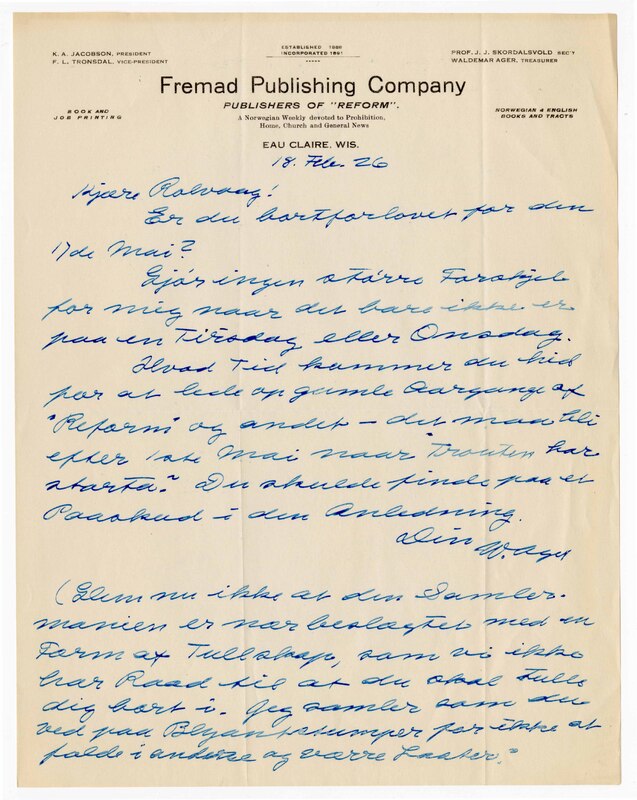 K. A. JACOBSON, PRESIDENT
F. L. TRONSDAL, VICE-PRESIDENT
ESTABLISHED 1886
INCORPORATED 1891
PROF. J. J. SKORDALSVOLD SEC'Y
WALDEMAR AGER, TREASURER
Fremad Publishing Company
PUBLISHERS OF "REFORM".
BOOK AND
JOB PRINTING
A Norwegian Weekly devoted to Prohibition,
Home, Church and General News
NORWEGIAN & ENGLISH
BOOKS AND TRACTS
EAU CLAIRE, WIS.
18. Feb. 26
Kjære Rolvaag!
Er du bortforlovet for den
17de Mai?
Gjør ingen større Forskjel
for mig naar det bare ikke er
paa en Tirsdag eller Onsdag.
Hvad Tid kommer du hid
for at lede op gamle Aargange af
"Reform" og andet – det maa bli
efter 1ste Mai naar "Trouten har
starta." Du skulde finde paa et
Paaskud i den Anledning.
Din W. Ager
(Glem nu ikke at den Samler-
manien er nær beslægtet med en
Form af Tullskap, som vi ikke
har Raad til at du skal tulle
dig bort i. Jeg samler som du
ved paa Blyantstumper for ikke at
falde i andre og værre Laster."